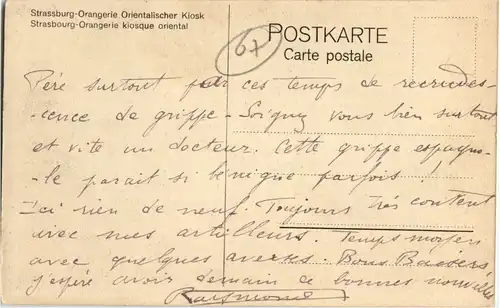 Strassburg-Orangerie Orientalischer Kiosk
Strasbourg-Orangerie kiosque oriental
POSTKARTE
Carte postale
67
Péré surtout par ces temps de recrudes-
-cence de grippe - Soignez vous bien surtout
et vite un docteur. Cette grippe espagno-
-le parait si bénigne parfois !
Ici rien de neuf. Toujours très content
avec mes artilleurs. Temps moyen
avec quelques averses. Bons Baisers
j'espère avoir demain de bonnes nouvelles
Raymond